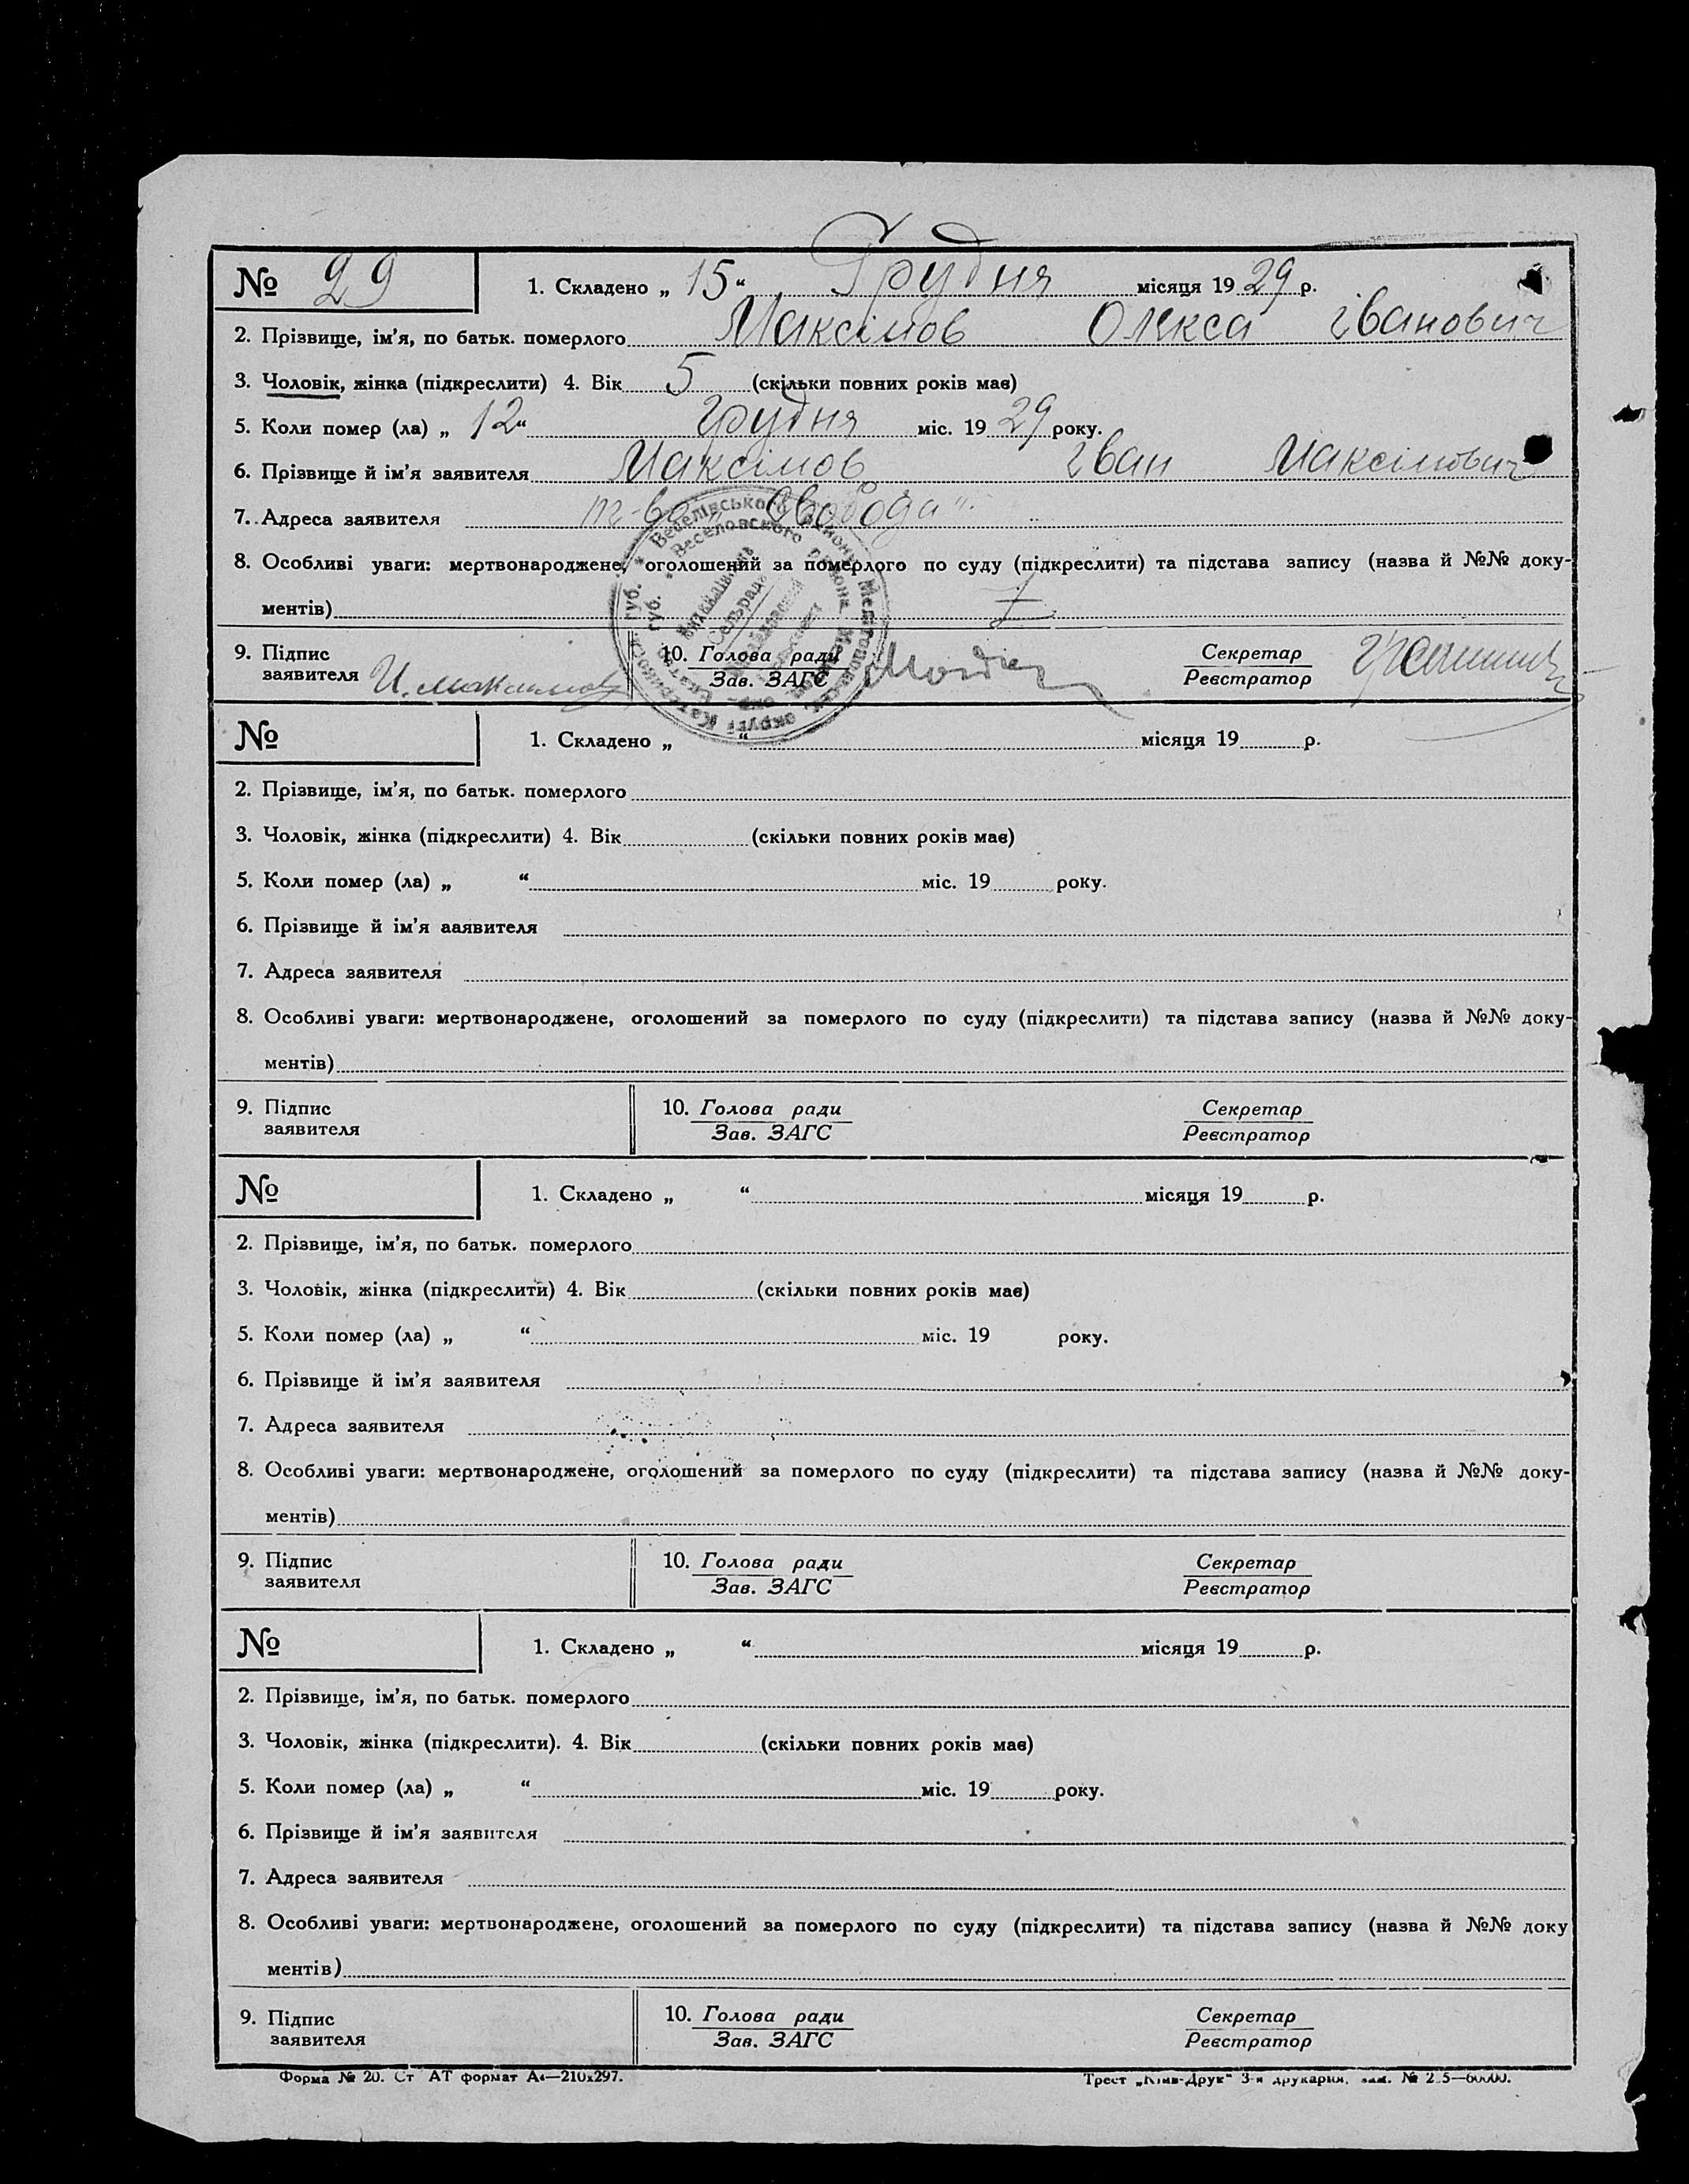 № 29 1. Складено „ 15 “ Грудня місяця 19 29 р.
2. Прізвище, ім'я, по батьк. померлого Максімов Олекса іванович
3. Чоловік, жінка (підкреслити) 4. Вік 5 (скільки повних років має)
5. Коли помер (ла) „ 12 “ грудня міс. 19 29 року.
6. Прізвище й ім'я заявителя Максімов іван Максімович
7. Адреса заявителя т-во „Свобода“
8. Особливі уваги: мертвонароджене, оголошений за померлого по суду (підкреслити) та підстава запису (назва й №№ доку-
ментів)
9. Підпис заявителя И. Максимов 10. Голова ради Зав. ЗАГС Секретар Реєстратор
Веселівського району Мелітопольської округи Катеринос. губ.
Веселовского района губ.
№ 1. Складено „ “ місяця 19 р.
2. Прізвище, ім'я, по батьк. померлого
3. Чоловік, жінка (підкреслити) 4. Вік (скільки повних років має)
5. Коли помер (ла) „ “ міс. 19 року.
6. Прізвище й ім'я заявителя
7. Адреса заявителя
8. Особливі уваги: мертвонароджене, оголошений за померлого по суду (підкреслити) та підстава запису (назва й №№ доку-
ментів)
9. Підпис заявителя 10. Голова ради Зав. ЗАГС Секретар Реєстратор
№ 1. Складено „ “ місяця 19 р.
2. Прізвище, ім'я, по батьк. померлого
3. Чоловік, жінка (підкреслити) 4. Вік (скільки повних років має)
5. Коли помер (ла) „ “ міс. 19 року.
6. Прізвище й ім'я заявителя
7. Адреса заявителя
8. Особливі уваги: мертвонароджене, оголошений за померлого по суду (підкреслити) та підстава запису (назва й №№ доку-
ментів)
9. Підпис заявителя 10. Голова ради Зав. ЗАГС Секретар Реєстратор
№ 1. Складено „ “ місяця 19 р.
2. Прізвище, ім'я, по батьк. померлого
3. Чоловік, жінка (підкреслити). 4. Вік (скільки повних років має)
5. Коли помер (ла) „ “ міс. 19 року.
6. Прізвище й ім'я заявителя
7. Адреса заявителя
8. Особливі уваги: мертвонароджене, оголошений за померлого по суду (підкреслити) та підстава запису (назва й №№ доку
ментів)
9. Підпис заявителя 10. Голова ради Зав. ЗАГС Секретар Реєстратор
Форма № 20. Ст АТ формат А4—210x297. Трест „Київ-Друк“ 3-я друкарня, зам. №